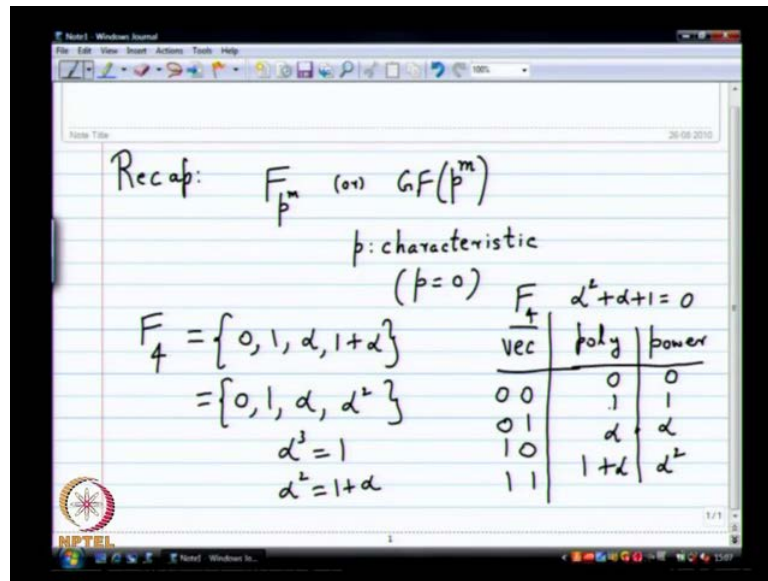 Note1 - Windows Journal
File Edit View Insert Actions Tools Help
100%
Note Title
26-08-2010
Recap: F_{p^m} (or) GF(p^m)
p: characteristic
(p=0)
F_4 α²+α+1=0
F_4 = {0, 1, α, 1+α}
= {0, 1, α, α²}
α³ = 1
α² = 1+α
vec | poly | power
00 | 0 | 0
01 | 1 | 1
10 | α | α
11 | 1+α | α²
1/1
1
NPTEL
Note1 - Windows Jo...
1507